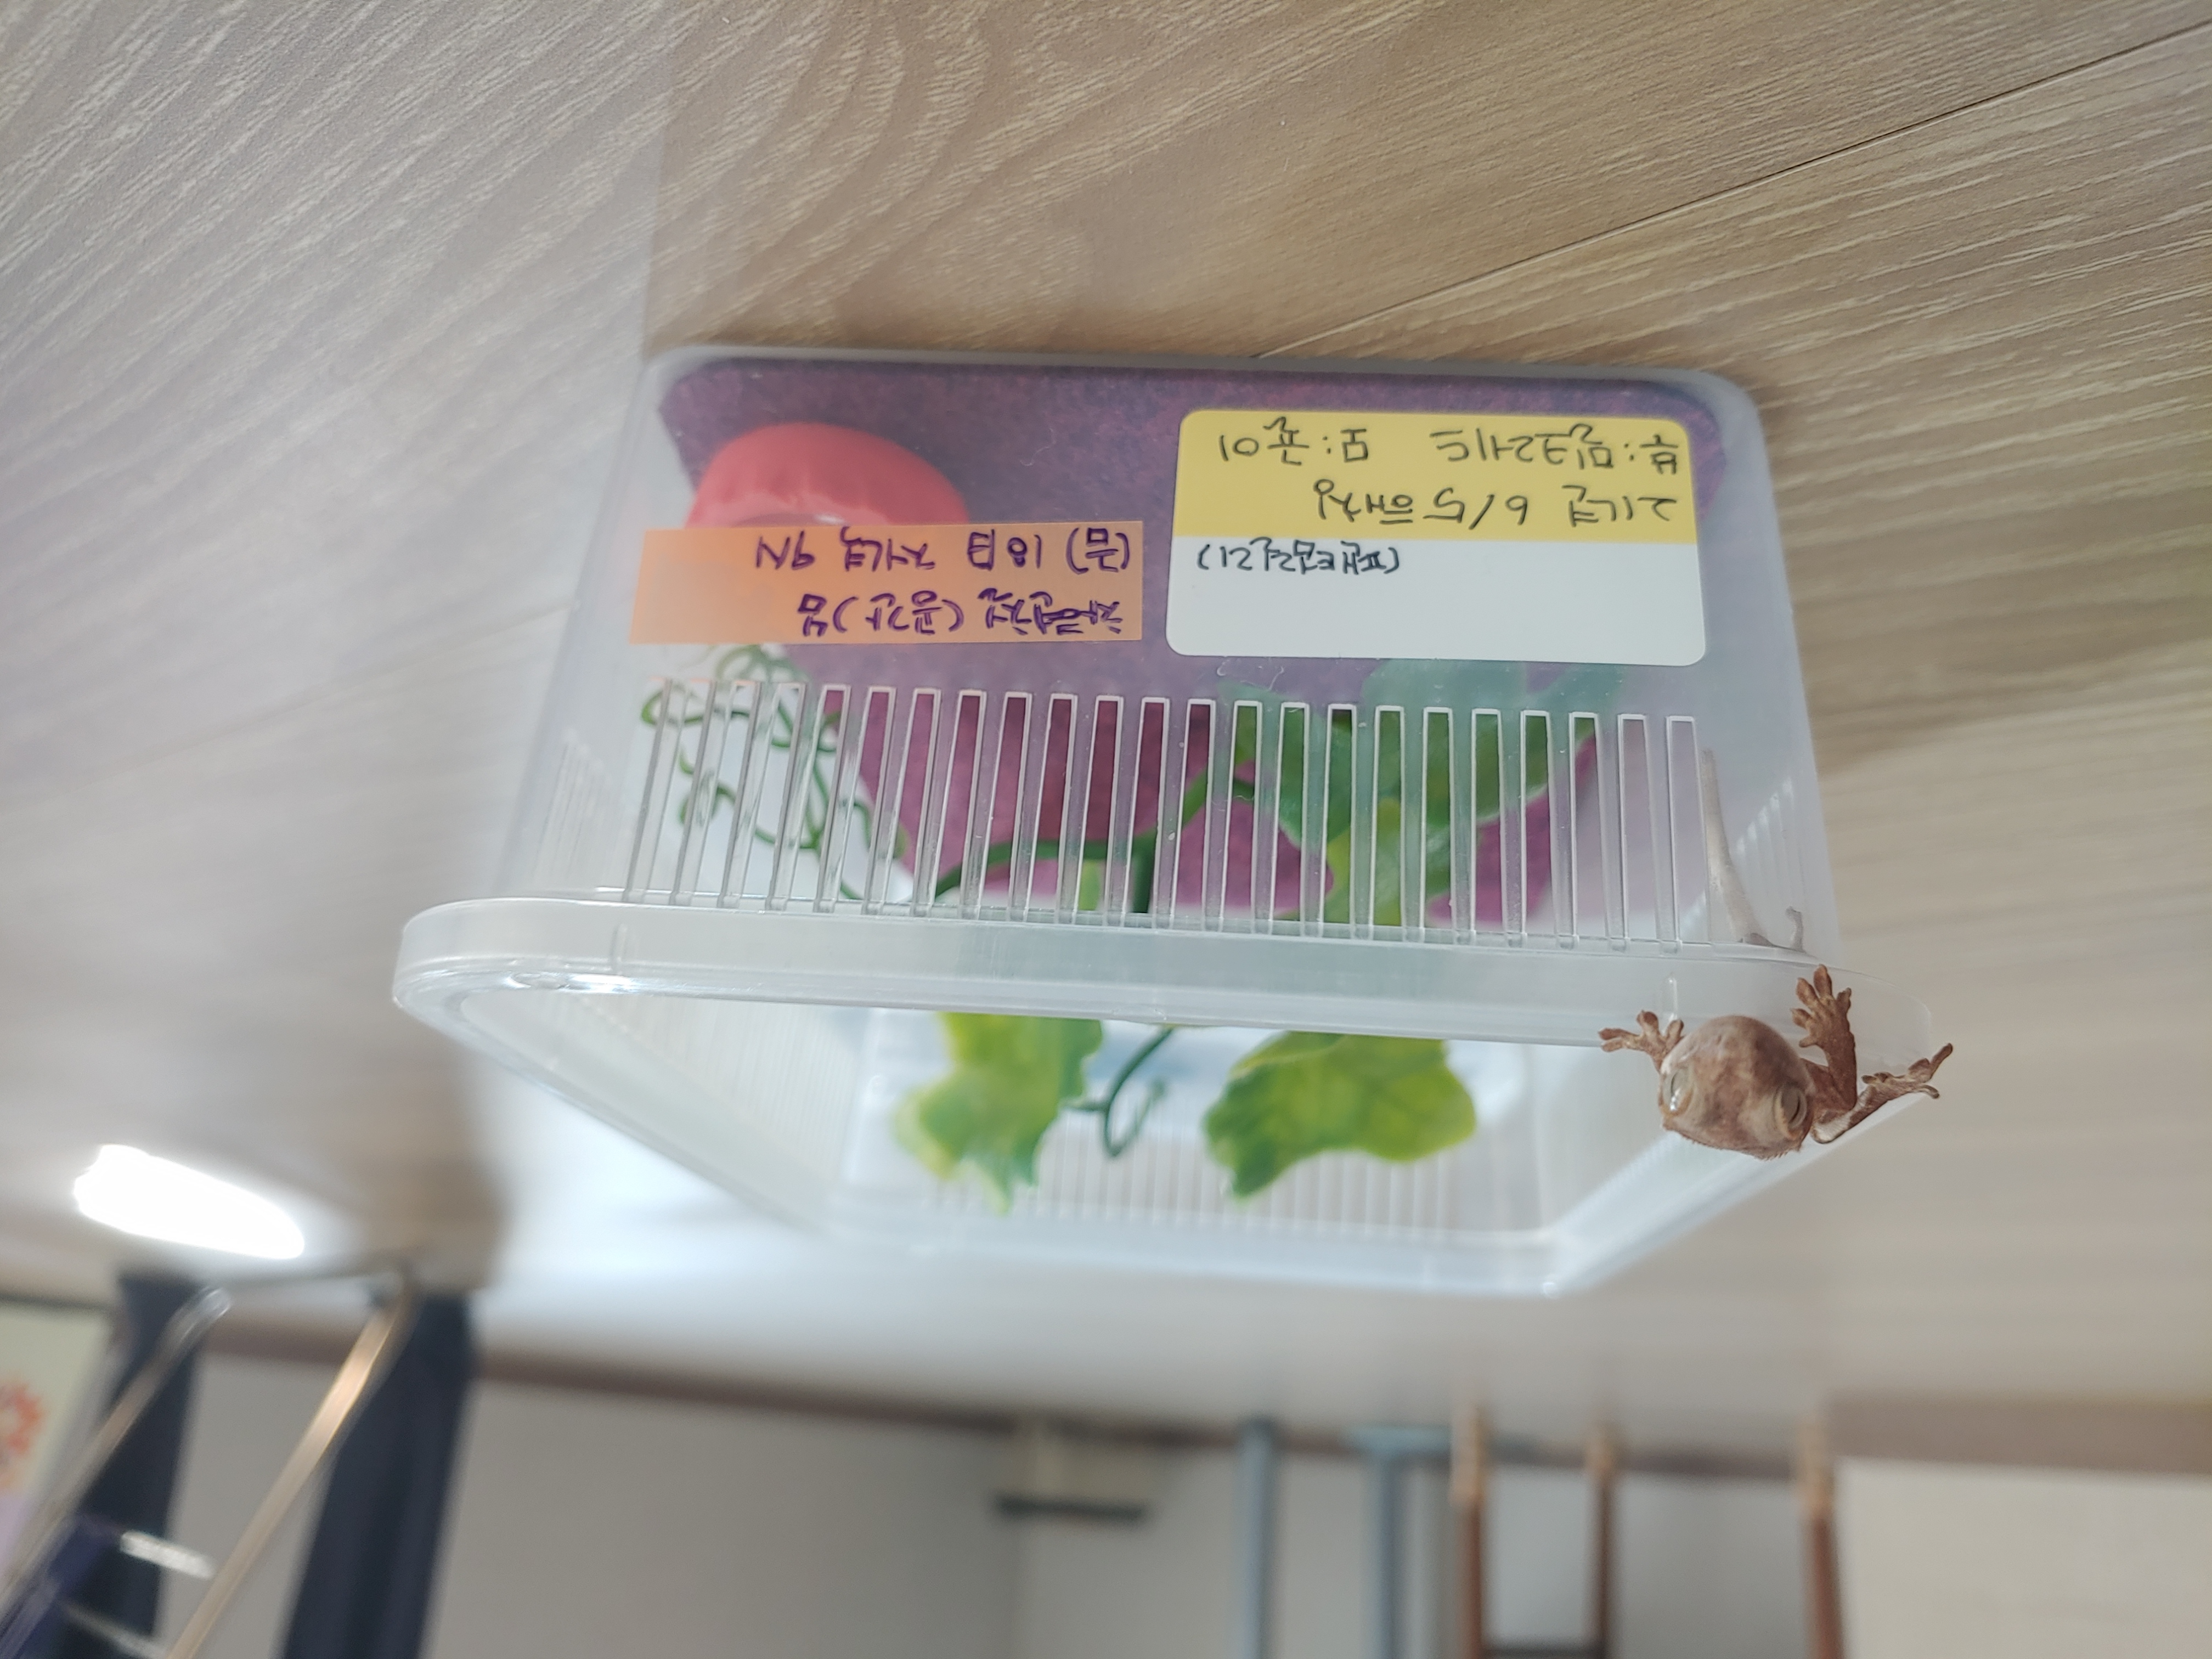 (팬텀릴리)
21년 6/5 해칭
부:밀크레드 모:귤이
차련철 (공간)님
(금) 18日 저녁 9시